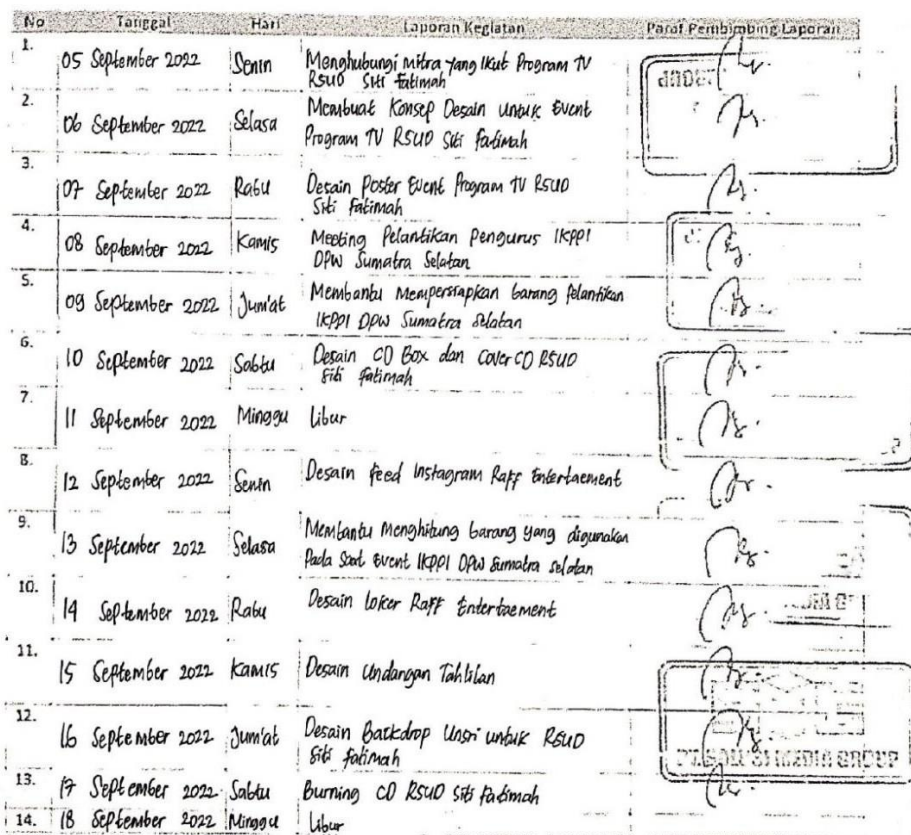 No Tanggal Hari Laporan Kegiatan Paraf Pembimbing Laporan
1. 05 September 2022 Senin Menghubungi mitra yang ikut Program TV
RSUD Siti Fatimah
2. 06 September 2022 Selasa Membuat Konsep Desain untuk Event
Program TV RSUD Siti Fatimah
3. 07 September 2022 Rabu Desain Poster Event Program TV RSUD
Siti Fatimah
4. 08 September 2022 Kamis Meeting Pelantikan Pengurus IKPPI
DPW Sumatra Selatan
5. 09 September 2022 Jum'at Membantu Mempersiapkan barang Pelantikan
IKPPI DPW Sumatra Selatan
6. 10 September 2022 Sabtu Desain CD Box dan Cover CD RSUD
Siti Fatimah
7. 11 September 2022 Minggu Libur
8. 12 September 2022 Senin Desain feed Instagram Raff Entertaement
9. 13 September 2022 Selasa Membantu Menghitung barang yang digunakan
Pada Saat Event IKPPI DPW Sumatra Selatan
10. 14 September 2022 Rabu Desain Loker Raff Entertaement
11. 15 September 2022 Kamis Desain Undangan Tahlilan
12. 16 September 2022 Jum'at Desain Backdrop Unsri untuk RSUD
Siti Fatimah
MEDIA GROUP
13. 17 September 2022 Sabtu Burning CD RSUD Siti Fatimah
14. 18 September 2022 Minggu Libur